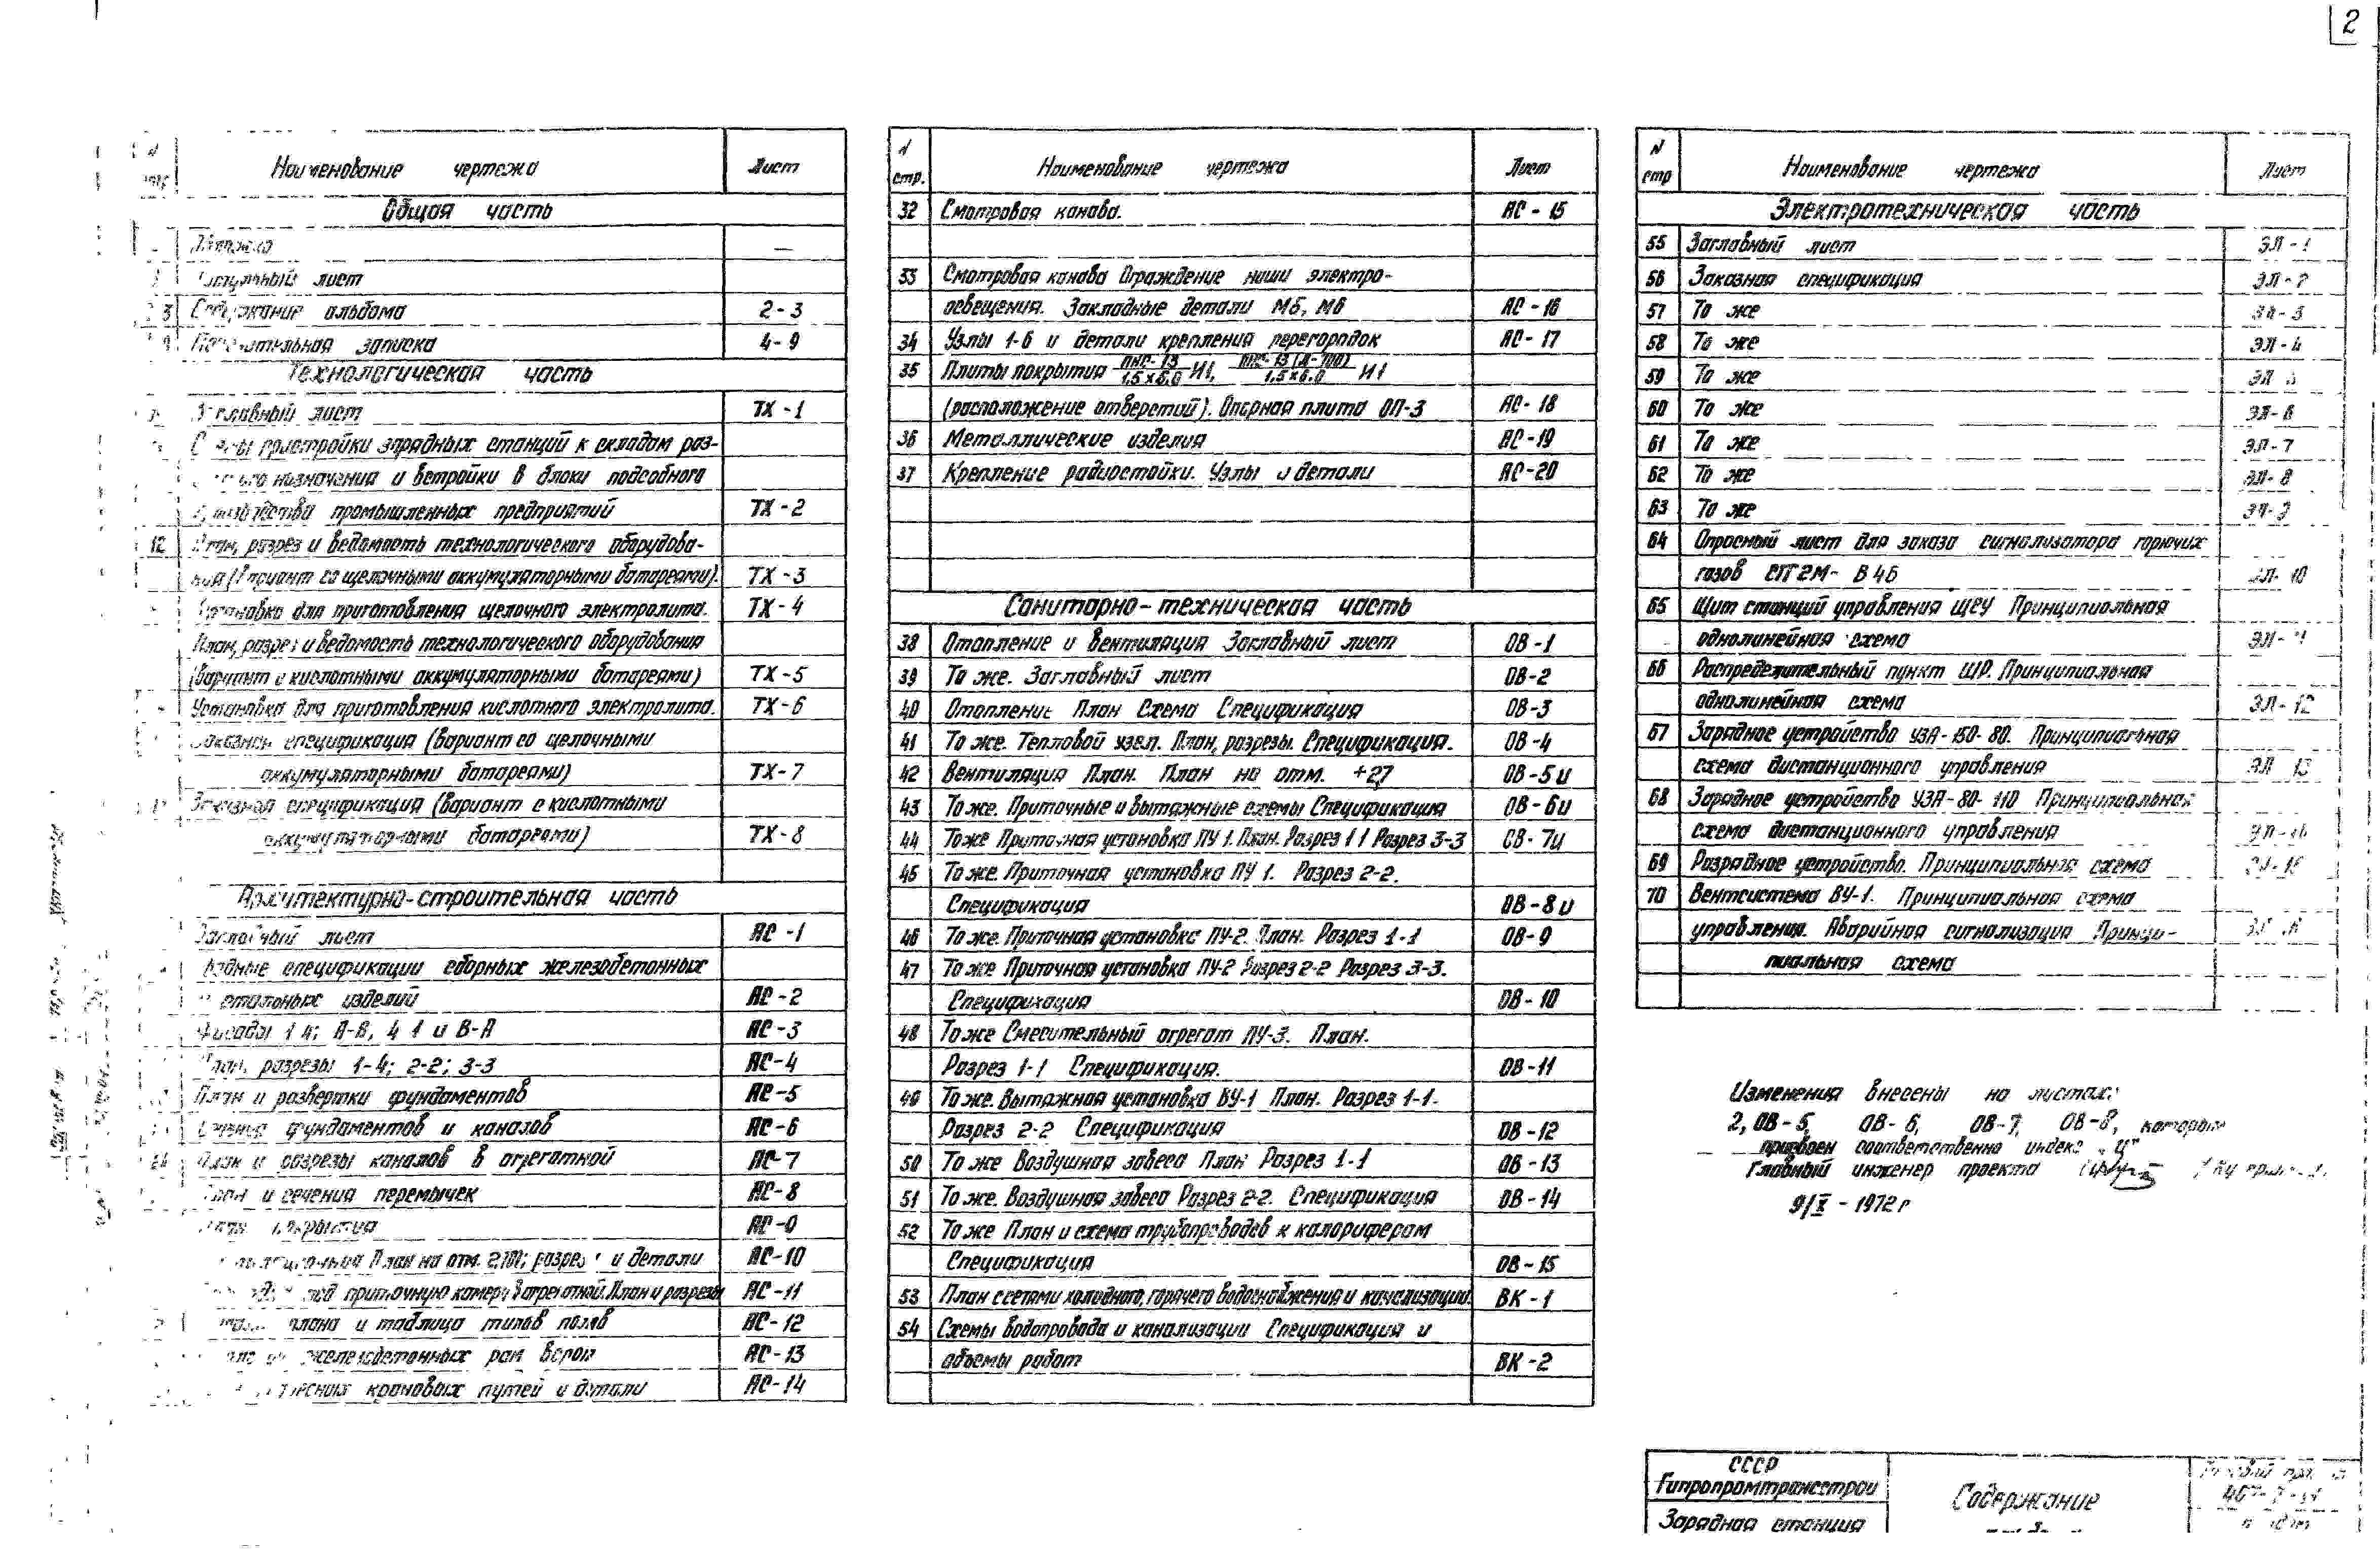 2
Наименование чертежа Лист
Общая часть
—
лист
3 Содержание альбома 2-3
Пояснительная записка 4-9
Технологическая часть
Заглавный лист ТХ-1
Схемы пристройки зарядных станций к складам раз-
назначения и встройки в блоки подсобного
производства промышленных предприятий ТХ-2
12 План, разрез и ведомость технологического оборудова-
ния (Вариант со щелочными аккумуляторными батареями). ТХ-3
Установка для приготовления щелочного электролита. ТХ-4
План, разрез и ведомость технологического оборудования
(Вариант с кислотными аккумуляторными батареями) ТХ-5
Установка для приготовления кислотного электролита. ТХ-6
Заказная спецификация (вариант со щелочными
аккумуляторными батареями) ТХ-7
Заказная спецификация (вариант с кислотными
аккумуляторными батареями) ТХ-8
Архитектурно-строительная часть
Заглавный лист АС-1
спецификации сборных железобетонных
изделий АС-2
Фасады 1 4; А-В, 4 1 и В-А АС-3
План, разрезы 1-4; 2-2; 3-3 АС-4
План и развертки фундаментов АС-5
Сечения фундаментов и каналов АС-6
План и разрезы каналов в агрегатной АС-7
План и сечения перемычек АС-8
покрытия АС-9
План на отм. разрез и детали АС-10
под приточную камеру в агрегатной. План и разрезы АС-11
плана и таблица типов полов АС-12
железобетонных рам ворот АС-13
крановых путей и детали АС-14
N стр. Наименование чертежа Лист
32 Смотровая канава. АС-15
33 Смотровая канава Ограждение ниши электро-
освещения. Закладные детали М5, М6 АС-16
34 Узлы 1-6 и детали крепления перегородок АС-17
35 Плиты покрытия ПНС-13/1,5×6,0 И1, 1,5×6,0 И1
(расположение отверстий). Опорная плита ОП-3 АС-18
36 Металлические изделия АС-19
37 Крепление радиостойки. Узлы и детали АС-20
Санитарно-техническая часть
38 Отопление и вентиляция Заглавный лист ОВ-1
39 То же. Заглавный лист ОВ-2
40 Отопление План Схема Спецификация ОВ-3
41 То же. Тепловой узел. План, разрезы. Спецификация. ОВ-4
42 Вентиляция План. План на отм. +2,7 ОВ-5и
43 То же. Приточные и вытяжные схемы Спецификация ОВ-6и
44 То же Приточная установка ПУ 1. План. Разрез 1 1 Разрез 3-3 ОВ-7и
45 То же. Приточная установка ПУ 1. Разрез 2-2.
Спецификация ОВ-8и
46 То же. Приточная установка ПУ-2. План. Разрез 1-1 ОВ-9
47 То же Приточная установка ПУ-2 Разрез 2-2 Разрез 3-3.
Спецификация ОВ-10
48 То же Смесительный агрегат ПУ-3. План.
Разрез 1-1 Спецификация. ОВ-11
49 То же. Вытяжная установка ВУ-1 План. Разрез 1-1.
Разрез 2-2 Спецификация ОВ-12
50 То же Воздушная завеса План Разрез 1-1 ОВ-13
51 То же. Воздушная завеса Разрез 2-2. Спецификация ОВ-14
52 То же План и схема трубопроводов к калориферам
Спецификация ОВ-15
53 План с сетями холодного, горячего водоснабжения и канализации. ВК-1
54 Схемы водопровода и канализации Спецификация и
объемы работ ВК-2
N стр Наименование чертежа Лист
Электротехническая часть
55 Заглавный лист ЭЛ-1
56 Заказная спецификация ЭЛ-2
57 То же ЭЛ-3
58 То же ЭЛ-4
59 То же ЭЛ-5
60 То же ЭЛ-6
61 То же ЭЛ-7
62 То же ЭЛ-8
63 То же ЭЛ-9
64 Опросный лист для заказа сигнализатора горючих
газов СГГ2М-В4Б ЭЛ-10
65 Щит станций управления ЩСУ Принципиальная
однолинейная схема
66 Распределительный пункт ШР. Принципиальная
однолинейная схема ЭЛ-12
67 Зарядное устройство УЗА-150-80. Принципиальная
схема дистанционного управления ЭЛ 13
68 Зарядное устройство УЗА-80-110 Принципиальная
схема дистанционного управления
69 Разрядное устройство. Принципиальная схема
70 Вентсистема ВУ-1. Принципиальная схема
управления. Аварийная сигнализация Принци-
пиальная схема
Изменения внесены на листах:
2, ОВ-5, ОВ-6, ОВ-7, ОВ-8, которым
присвоен соответственно индекс „И"
Главный инженер проекта
9/X - 1972 г
СССР
Гипропромтрансстрой
Зарядная станция
Содержание